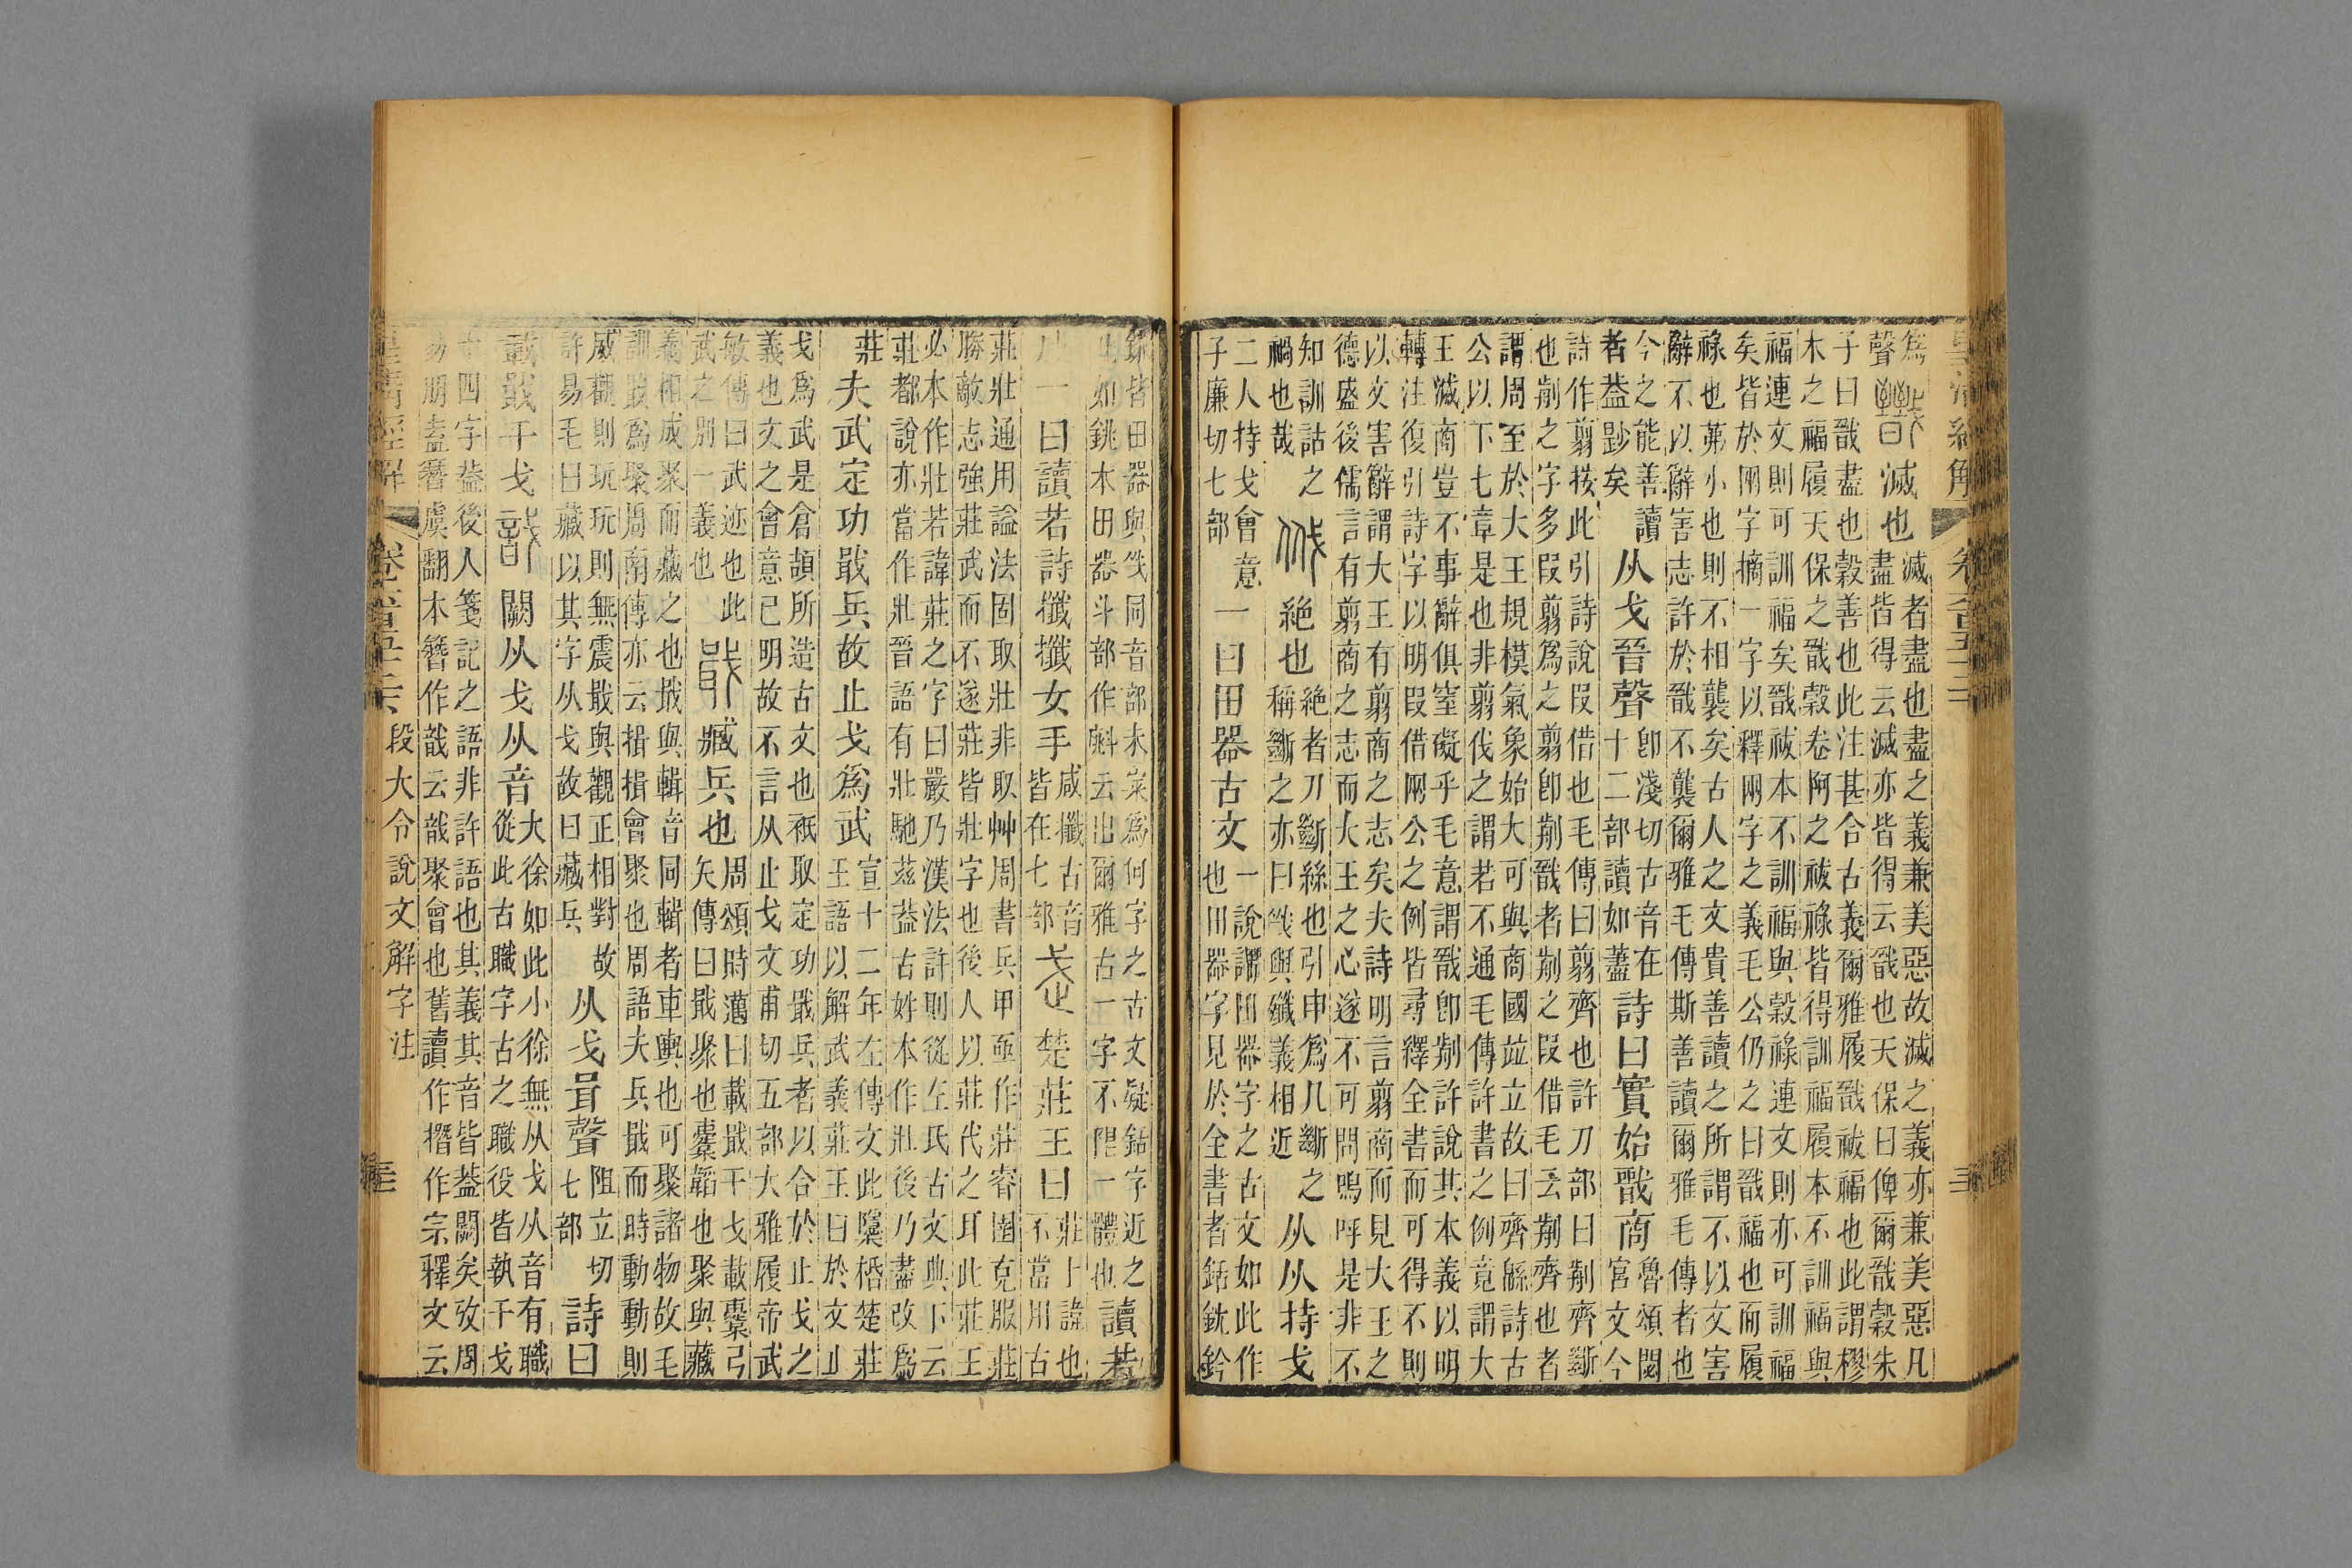 皇清經解
卷六百五十二
爲
聲
滅也
滅者盡也盡之義兼美惡故滅之義亦兼美惡凡
盡皆得云滅亦皆得云戩也天保曰俾爾戩穀朱
子曰戩盡也穀善也此注甚合古義爾雅履戩祓福也此謂樛
木之福履天保之戩穀卷阿之祓祿皆得訓福履本不訓福與
福連文則可訓福矣戩祓本不訓福與穀祿連文則亦可訓福
矣皆於兩字摘一字以釋兩字之義毛公仍之曰戩福也而履
祿也茀小也則不相襲矣古人之文貴善讀之所謂不以文害
辭不以辭害志許於戩不襲爾雅毛傳斯善讀爾雅毛傳者也
今之能善讀
者葢尟矣
从戈晉聲
卽淺切古音在
十二部讀如藎
詩曰實始戩商
魯頌閟
宮文今
詩作翦按此引詩說叚借也毛傳曰翦齊也許刀部曰前齊斷
也前之字多叚翦爲之翦卽前戩者前之叚借毛云前齊也者
謂周至於大王規模氣象始大可與商國竝立故曰齊緜詩古
公以下七章是也非翦伐之謂若不通毛傳許書之例竟謂大
王滅商豈不事辭俱窒礙乎毛意謂戩卽前許說其本義以明
轉注復引詩字以明叚借兩公之例皆尋繹全書而可得不則
以文害辭謂大王有翦商之志矣夫詩明言翦商而見大王之
德盛後儒言有翦商之志而大王之心遂不可問嗚呼是非不
知訓詁之
禍也哉
㦰
絕也
絕者刀斷絲也引申爲凡斷之
稱斷之亦曰㦰與殲義相近
从从持戈
二人持戈會意
子廉切七部
一曰田器古文
一說謂田器字之古文如此作
也田器字見於全書者銛銚鈐
皆田器與㦰同音部未宷爲何字之古文疑銛字近之
如銚本田器斗部作斛云出爾雅古一字不一體也
讀若
一曰讀若詩攕攕女手
咸攕古音
皆在七部
武
楚莊王曰
莊上諱也
不當用古
莊壯通用謚法固取壯非取艸周書兵甲亟作莊睿圉克服莊
勝敵志強莊武而不遂莊皆壯字也後人以莊代之耳此莊王
必本作壯若諱莊之字曰嚴乃漢法許則從左氏古文與下云
莊都說亦當作壯晉語有壯馳茲葢古姓本作壯後乃盡改爲
莊
夫武定功戢兵故止戈爲武
宣十二年左傳文此檃桰楚莊
王語以解武義莊王曰於文止
戈爲武是倉頡所造古文也祇取定功戢兵者以合於止戈之
義也文之會意已明故不言从止戈文甫切五部大雅履帝武
敏傳曰武迹也此
武之別一義也
戢
臧兵也
周頌時邁曰載戢干戈載櫜弓
矢傳曰戢聚也櫜韜也聚與藏
義相成聚而藏之也戢與輯音同輯者車輿也可聚諸物故毛
訓戢爲聚周南傳亦云揖揖會聚也周語夫兵戢而時動動則
威觀則玩玩則無震戢與觀正相對故
許易毛曰藏以其字从戈故曰藏兵
从戈咠聲
阻立切
七部
詩曰
載戢干戈
戠
闕从戈从音
大徐如此小徐無从戈从音有職
從此古職字古之職役皆執干戈
十四字葢後人箋記之語非許語也其義其音皆葢闕矣攷周
易朋盍簪虞翻本簪作戠云戠聚會也舊讀作撍作宗釋文云
皇清經解
卷六百五十二
段大令說文解字注